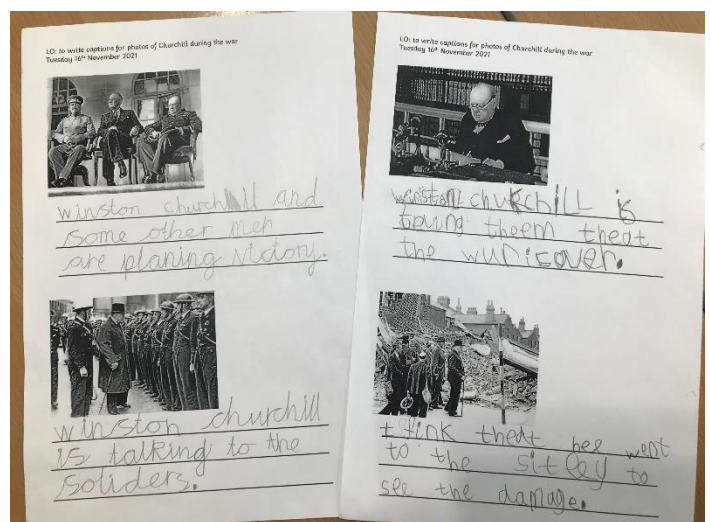 LO: to write captions for photos of Churchill during the war
Tuesday 16th November 2021
winston churchill and
some other men
are planing victory.
winston churchill
is talking to the
soliders.
LO: to write captions for photos of Churchill during the war
Tuesday 16th November 2021
winston chuRchiLL is
theem theat
the
I fink theat he went
to the sitey to
see the damage.